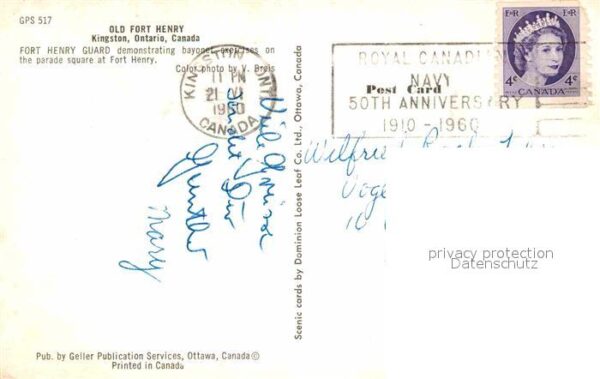 GPS 517
OLD FORT HENRY
Kingston, Ontario, Canada
FORT HENRY GUARD demonstrating bayonet exercises on
the parade square at Fort Henry.
Color photo by V. Breis
KINGSTON ONT
11 PM
21 VI
1960
CANADA
ROYAL CANADIAN
NAVY
50TH ANNIVERSARY
1910 - 1960
Post Card
EiiR EiiR
4¢ 4¢
CANADA
Viele Grüsse
sendet Dir
Günther
Nancy
Scenic cards by Dominion Loose Leaf Co. Ltd., Ottawa, Canada
Wilfried
10
privacy protection
Datenschutz
Pub. by Geller Publication Services, Ottawa, Canada ©
Printed in Canada